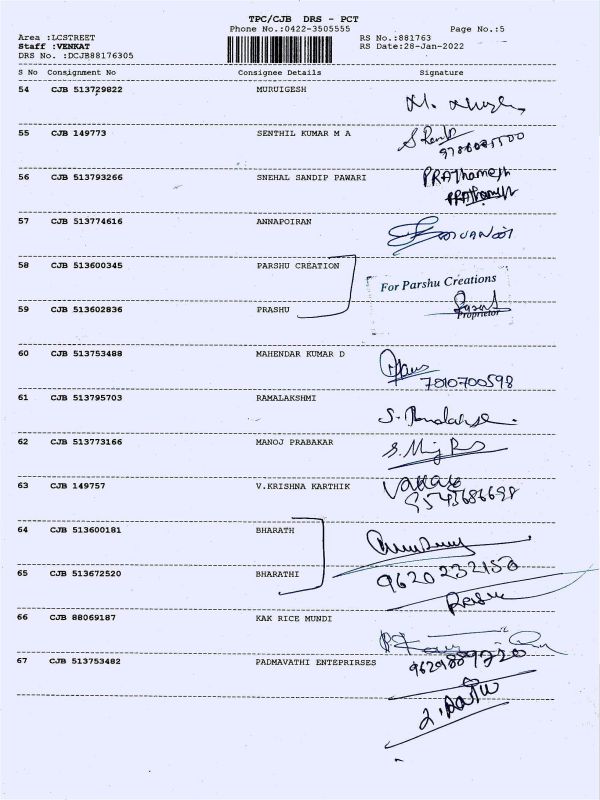 TPC/CJB DRS - PCT
Phone No.:0422-3505555 Page No.:5
Area :LCSTREET RS No.:881763
Staff :VENKAT RS Date:28-Jan-2022
DRS No. :DCJB88176305
S No Consignment No Consignee Details Signature
54 CJB 513729822 MURUIGESH
55 CJB 149773 SENTHIL KUMAR M A
56 CJB 513793266 SNEHAL SANDIP PAWARI PRAThamesh
PRAThamesh
57 CJB 513774616 ANNAPOIRAN
58 CJB 513600345 PARSHU CREATION
For Parshu Creations
59 CJB 513602836 PRASHU
Proprietor
60 CJB 513753488 MAHENDAR KUMAR D
7010700598
61 CJB 513795703 RAMALAKSHMI
62 CJB 513773166 MANOJ PRABAKAR
63 CJB 149757 V.KRISHNA KARTHIK
64 CJB 513600181 BHARATH
65 CJB 513672520 BHARATHI 9620232158
66 CJB 88069187 KAK RICE MUNDI
67 CJB 513753482 PADMAVATHI ENTEPRIRSES